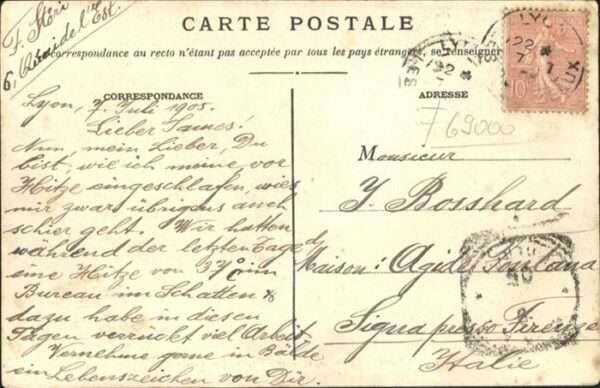 F. Störi
6, Quai de l'Est.
CARTE POSTALE
La correspondance au recto n'étant pas acceptée par tous les pays étrangers, se renseigner
CORRESPONDANCE
ADRESSE
Lyon, 7. Juli 1905.
Lieber James!
Nun, mein Lieber, Du
bist, wie ich meine vor
Hitze eingeschlafen, wies
mir zwar übrigens auch
schier geht. Wir hatten
während der letzten Tage
eine Hitze von 37° im
Bureau im Schatten &
dazu habe in diesen
Tagen verrückt viel Arbeit.
Vernehme gerne in Bälde
ein Lebenszeichen von Dir.
769000
Monsieur
J. Bosshard
Maison:
Signa presso Firenze
Italie
LYON
22
7
10